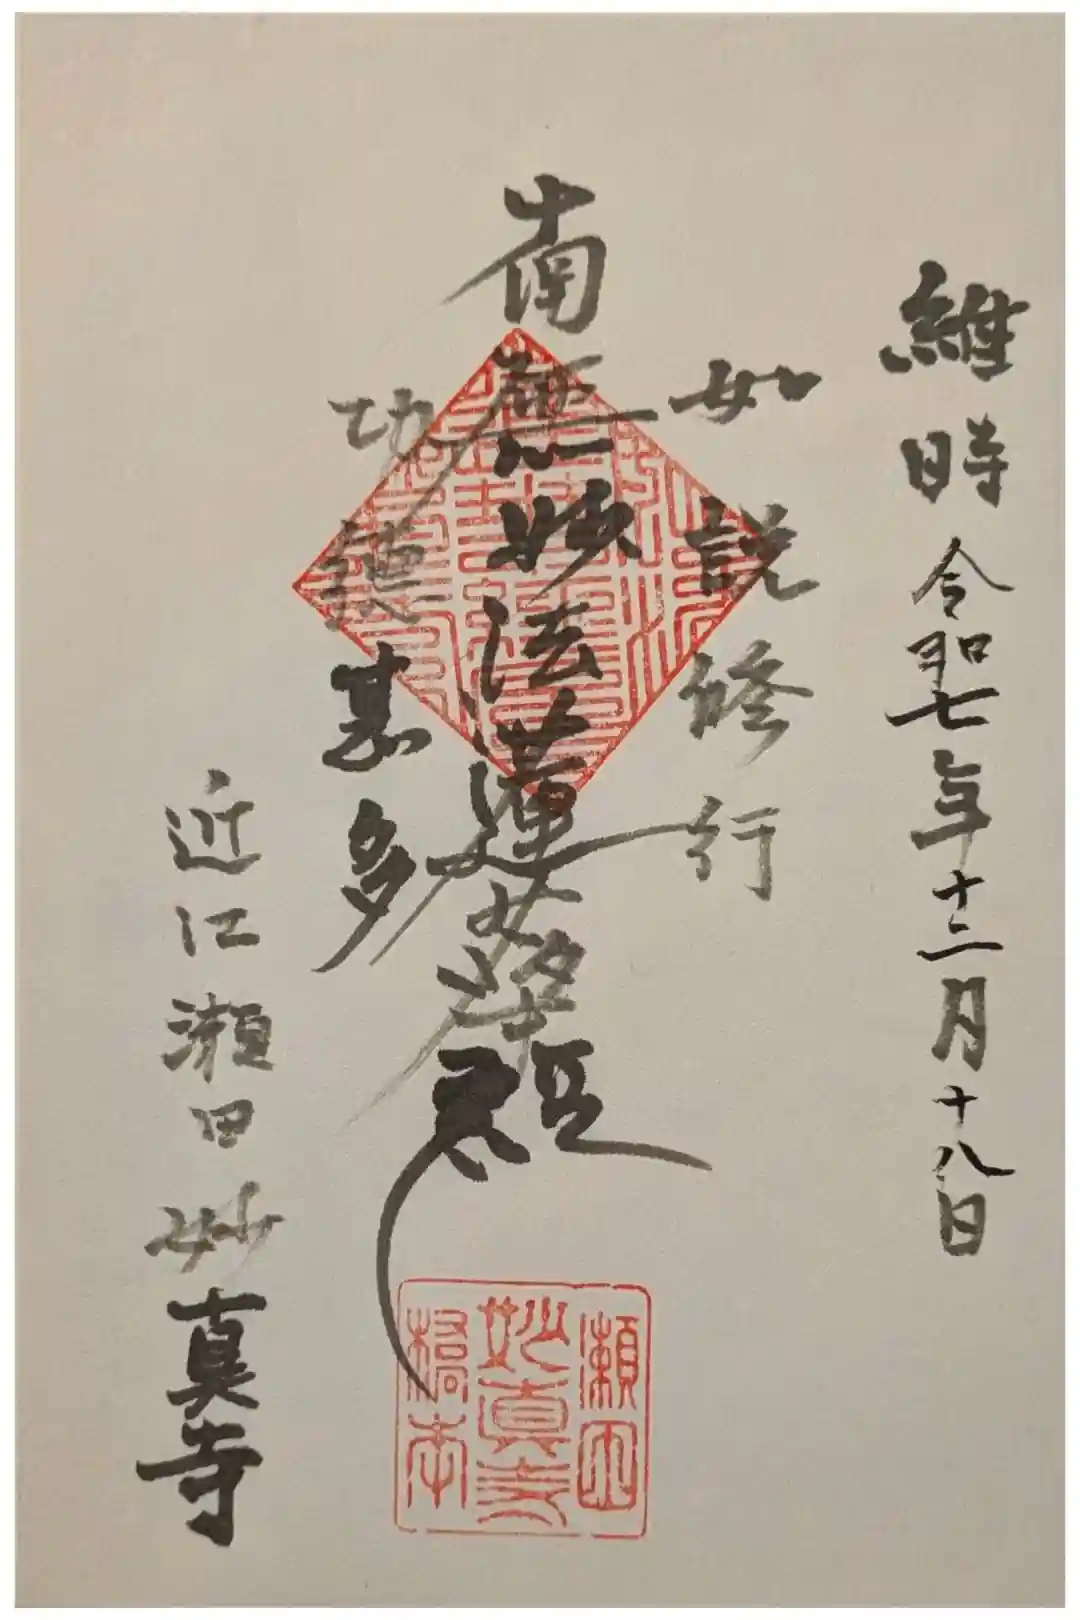 維時 令和七年十二月十八日
如説修行
南無妙法蓮華経
功徳甚多
近江瀬田 妙真寺
瀬田
妙真寺
橋本